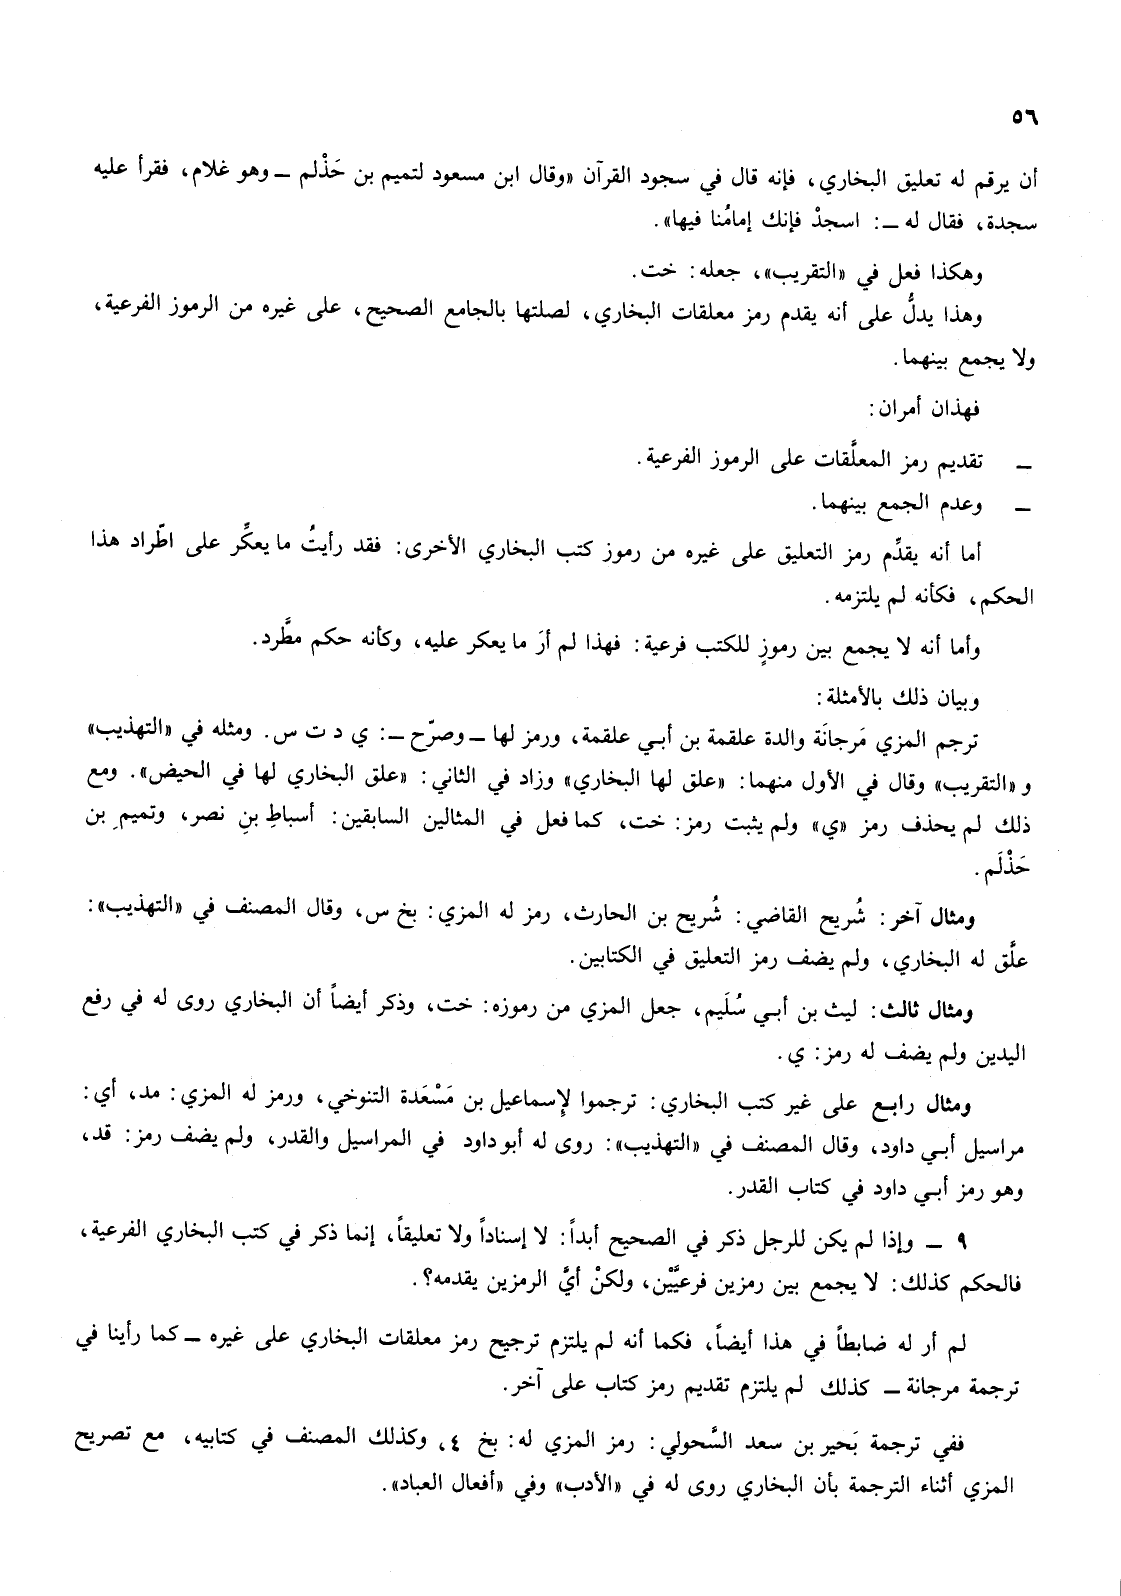 ٥٦
أن يرقم له تعليق البخاري، فإنه قال في سجود القرآن «وقال ابن مسعود لتميم بن حَذْلم – وهو غلام، فقرأ عليه
سجدة، فقال له –: اسجدْ فإنك إمامُنا فيها».
وهكذا فعل في «التقريب»، جعله: خت.
وهذا يدلُّ على أنه يقدم رمز معلقات البخاري، لصلتها بالجامع الصحيح، على غيره من الرموز الفرعية،
ولا يجمع بينهما.
فهذان أمران:
– تقديم رمز المعلَّقات على الرموز الفرعية.
– وعدم الجمع بينهما.
أما أنه يقدِّم رمز التعليق على غيره من رموز كتب البخاري الأخرى: فقد رأيتُ ما يعكِّر على اطّراد هذا
الحكم، فكأنه لم يلتزمه.
وأما أنه لا يجمع بين رموزٍ للكتب فرعية: فهذا لم أرَ ما يعكر عليه، وكأنه حكم مطَّرد.
وبيان ذلك بالأمثلة:
ترجم المزي مَرجانَة والدة علقمة بن أبي علقمة، ورمز لها – وصرّح –: ي د ت س. ومثله في «التهذيب»
و «التقريب» وقال في الأول منهما: «علق لها البخاري» وزاد في الثاني: «علق البخاري لها في الحيض». ومع
ذلك لم يحذف رمز «ي» ولم يثبت رمز: خت، كما فعل في المثالين السابقين: أسباطِ بنِ نصر، وتميمِ بن
حَذْلَم.
ومثال آخر: شُريح القاضي: شُريح بن الحارث، رمز له المزي: بخ س، وقال المصنف في «التهذيب»:
علَّق له البخاري، ولم يضف رمز التعليق في الكتابين.
ومثال ثالث: ليث بن أبي سُلَيم، جعل المزي من رموزه: خت، وذكر أيضاً أن البخاري روى له في رفع
اليدين ولم يضف له رمز: ي.
ومثال رابع على غير كتب البخاري: ترجموا لإسماعيل بن مَسْعَدة التنوخي، ورمز له المزي: مد، أي:
مراسيل أبي داود، وقال المصنف في «التهذيب»: روى له أبو داود في المراسيل والقدر، ولم يضف رمز: قد،
وهو رمز أبي داود في كتاب القدر.
٩ – وإذا لم يكن للرجل ذكر في الصحيح أبداً: لا إسناداً ولا تعليقاً، إنما ذكر في كتب البخاري الفرعية،
فالحكم كذلك: لا يجمع بين رمزين فرعيَّيْن، ولكنْ أيَّ الرمزين يقدمه؟.
لم أر له ضابطاً في هذا أيضاً، فكما أنه لم يلتزم ترجيح رمز معلقات البخاري على غيره – كما رأينا في
ترجمة مرجانة – كذلك لم يلتزم تقديم رمز كتاب على آخر.
ففي ترجمة بَحير بن سعد السَّحولي: رمز المزي له: بخ ٤، وكذلك المصنف في كتابيه، مع تصريح
المزي أثناء الترجمة بأن البخاري روى له في «الأدب» وفي «أفعال العباد».